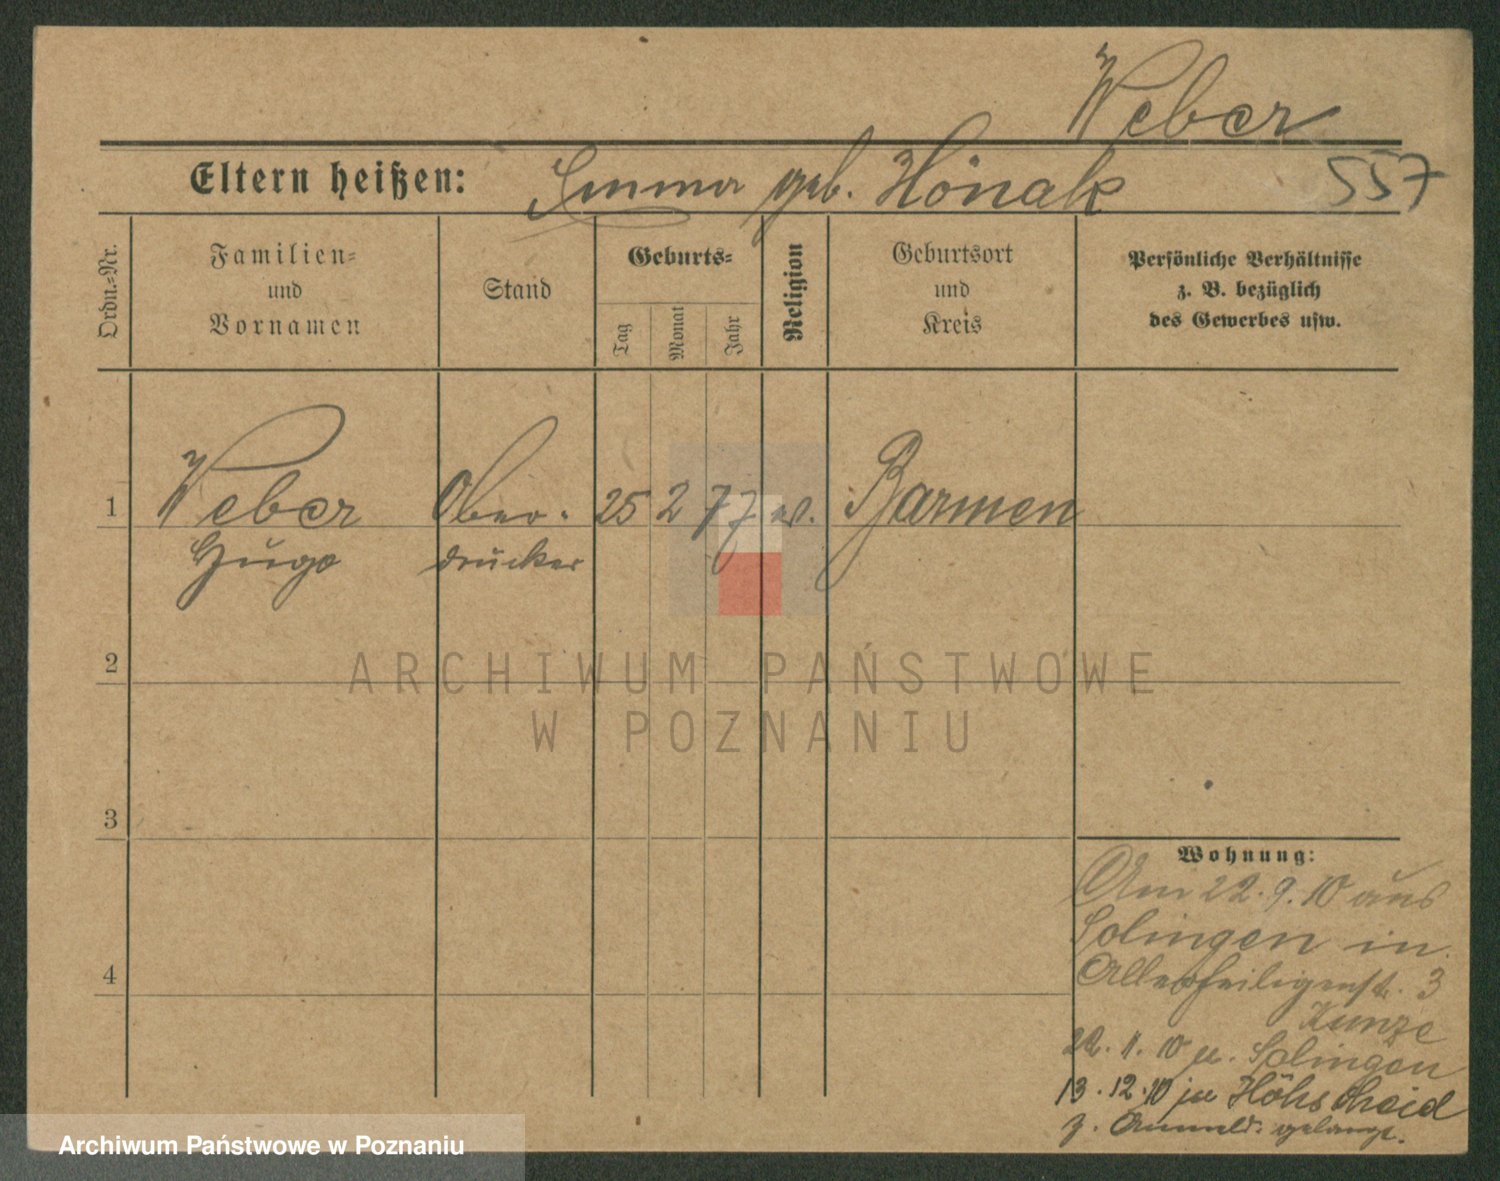 Weber
Eltern heißen: Emma geb. Hönak
557
Ordn.-Nr.
Familien-
und
Vornamen
Stand
Geburts-
Tag
Monat
Jahr
Religion
Geburtsort
und
Kreis
Persönliche Verhältnisse
z. B. bezüglich
des Gewerbes usw.
1 Weber Ober- 25 2 77 ev. Barmen
Hugo drucker
2
ARCHIWUM PAŃSTWOWE
W POZNANIU
3
Wohnung:
Am 22.9.10 aus
Solingen in
Allerheiligenst. 3
Kunze
22.11.10 n. Solingen
13.12.10 in Höhscheid
z. Anmeld. gelangt.
4
Archiwum Państwowe w Poznaniu